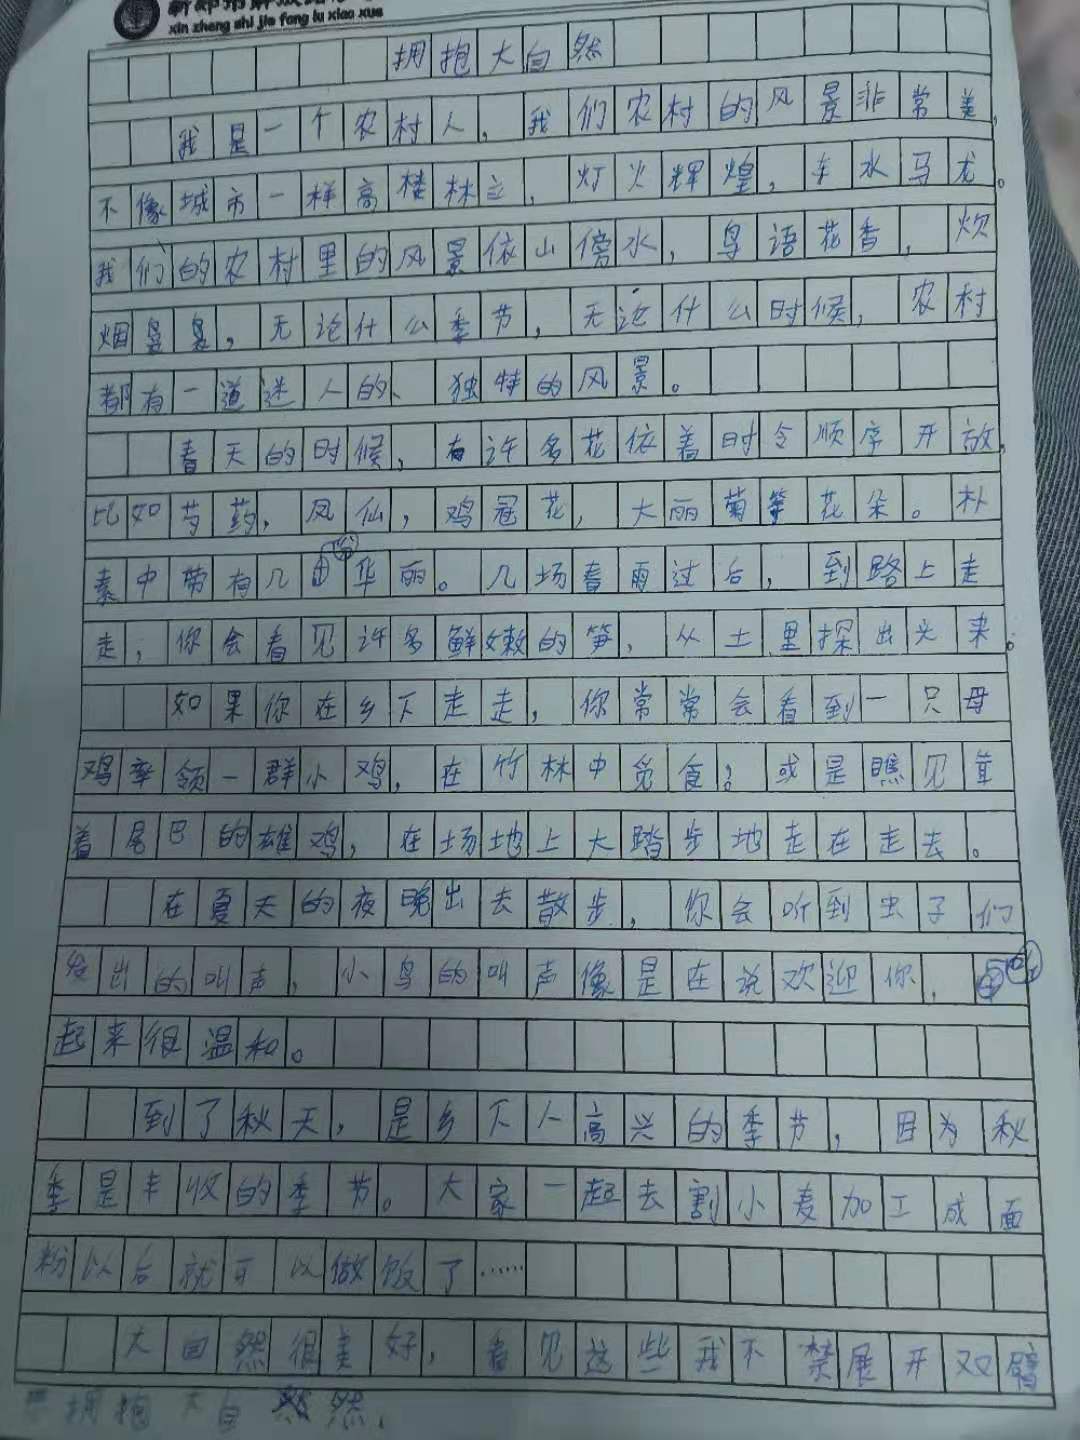 xin zheng shi jie fang lu xiao xue
拥抱大自然
我是一个农村人，我们农村的风景非常美，
不像城市一样高楼林立，灯火辉煌，车水马龙。
我们的农村里的风景依山傍水，鸟语花香，炊
烟袅袅，无论什么季节，无论什么时候，农村
都有一道迷人的、独特的风景。
春天的时候，有许多花依着时令顺序开放，
比如芍药，凤仙，鸡冠花，大丽菊等花朵。朴
素中带有几分华丽。几场春雨过后，到路上走
走，你会看见许多鲜嫩的笋，从土里探出头来。
如果你在乡下走走，你常常会看到一只母
鸡率领一群小鸡，在竹林中觅食；或是瞧见耸
着尾巴的雄鸡，在场地上大踏步地走在走去。
在夏天的夜晚出去散步，你会听到虫子们
发出的叫声，小鸟的叫声像是在说欢迎你，
起来很温和。
到了秋天，是乡下人高兴的季节，因为秋
季是丰收的季节。大家一起去割小麦加工成面
粉以后就可以做饭了……
大自然很美好，看见这些我不禁展开双臂
拥抱大自然。